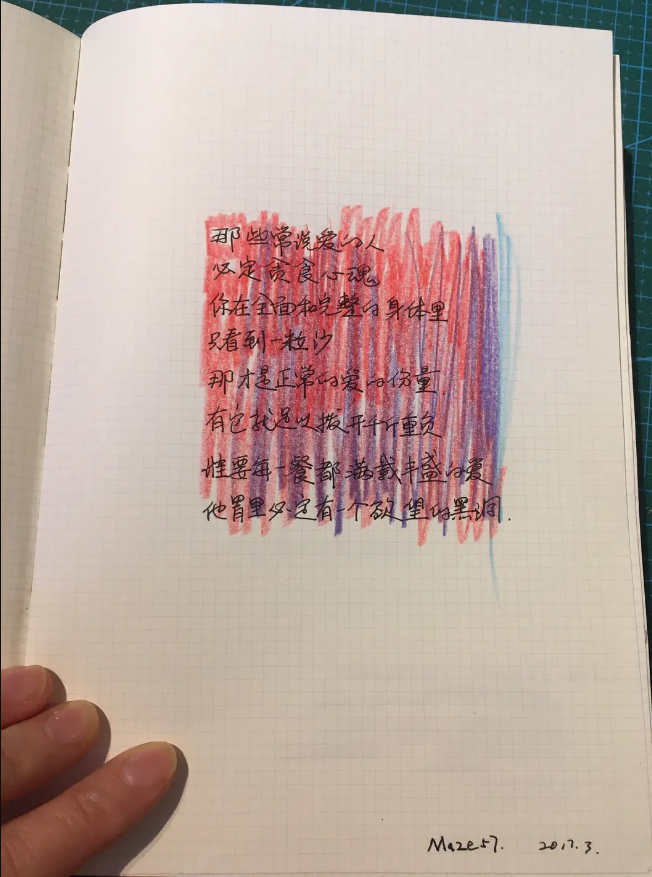 那些常说爱的人
必定贪食心魂
你在全面和完整的身体里
只看到一粒沙
那才是正常的爱的份量.
有它就足以拨开千斤重负
谁要每一餐都满载丰盛的爱
他胃里必定有一个欲望的黑洞.
Maze57. 2017.3.